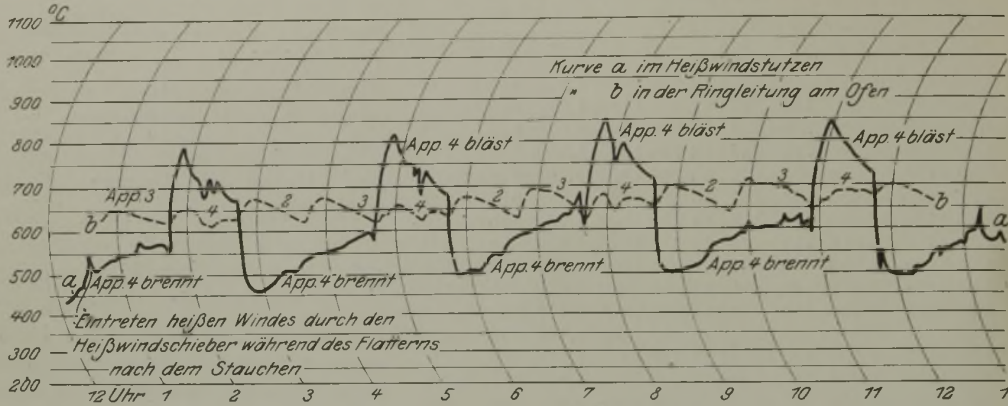 °C
1100
1000
900
800
700
600
500
400
300
200
Kurve a im Heißwindstutzen
" b in der Ringleitung am Ofen
App. 4 bläst
App. 4 bläst
App. 4 bläst
App. 3
4
2
3
4
2
3
4
2
3
4
b
b
a
a
App. 4 brennt
App. 4 brennt
App. 4 brennt
App. 4 brennt
Eintreten heißen Windes durch den
Heißwindschieber während des Flatterns
nach dem Stauchen
12 Uhr 1 2 3 4 5 6 7 8 9 10 11 12 1